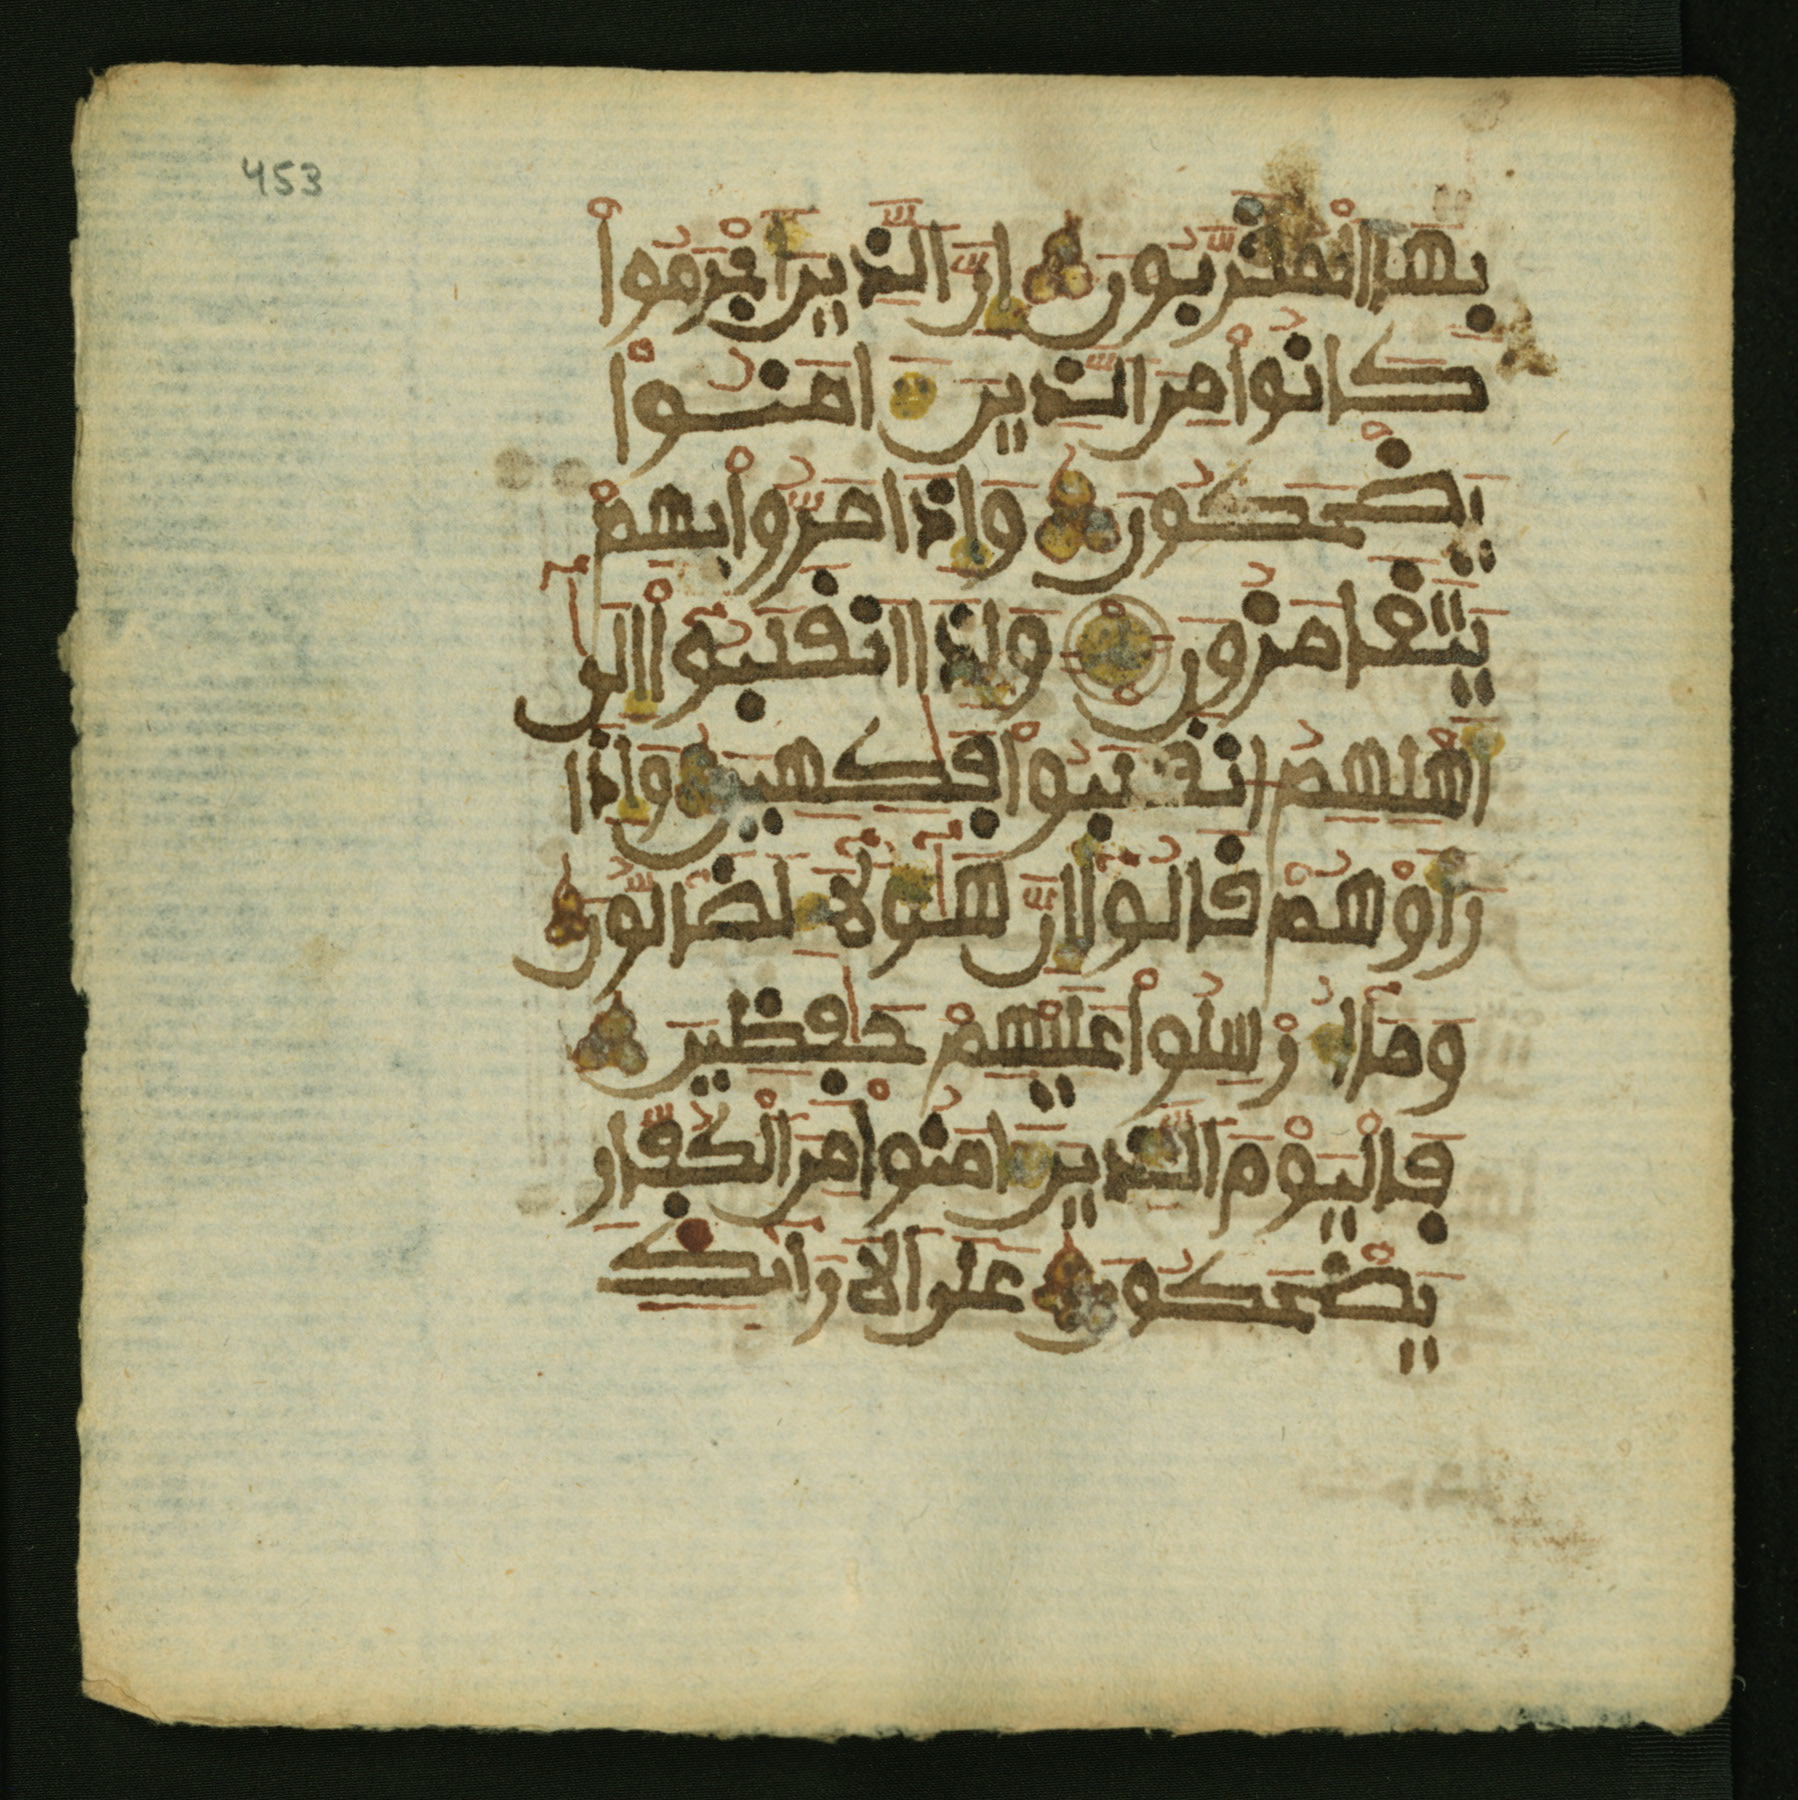 453
بِهَا الْمُقَرَّبُونَ إِنَّ الَّذِينَ أَجْرَمُواْ
كَانُواْ مِنَ الَّذِينَ ءَامَنُواْ
يَضْحَكُونَ وَإِذَا مَرُّواْ بِهِمْ
يَتَغَامَزُونَ وَإِذَا انقَلَبُواْ إِلَى
أَهْلِهِمُ انقَلَبُواْ فَٰكِهِينَ وَإِذَا
رَأَوْهُمْ قَالُواْ إِنَّ هَٰٓؤُلَآءِ لَضَآلُّونَ
وَمَآ أُرْسِلُواْ عَلَيْهِمْ حَٰفِظِينَ
فَالْيَوْمَ الَّذِينَ ءَامَنُواْ مِنَ الْكُفَّارِ
يَضْحَكُونَ عَلَى الْأَرَآئِكِ